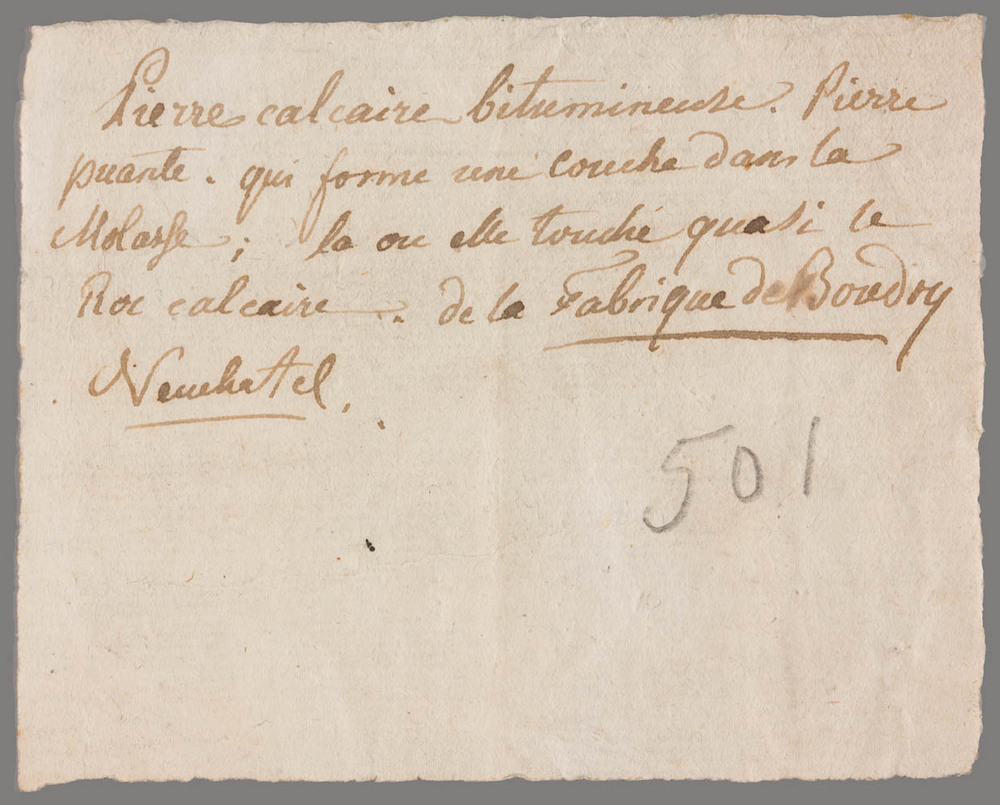 Pierre calcaire bitumineuse. Pierre
puante. qui forme une couche dans la
Molasse; la ou elle touche quasi le
Roc calcaire. de la Fabrique de Boudry
Neuchatel.
501